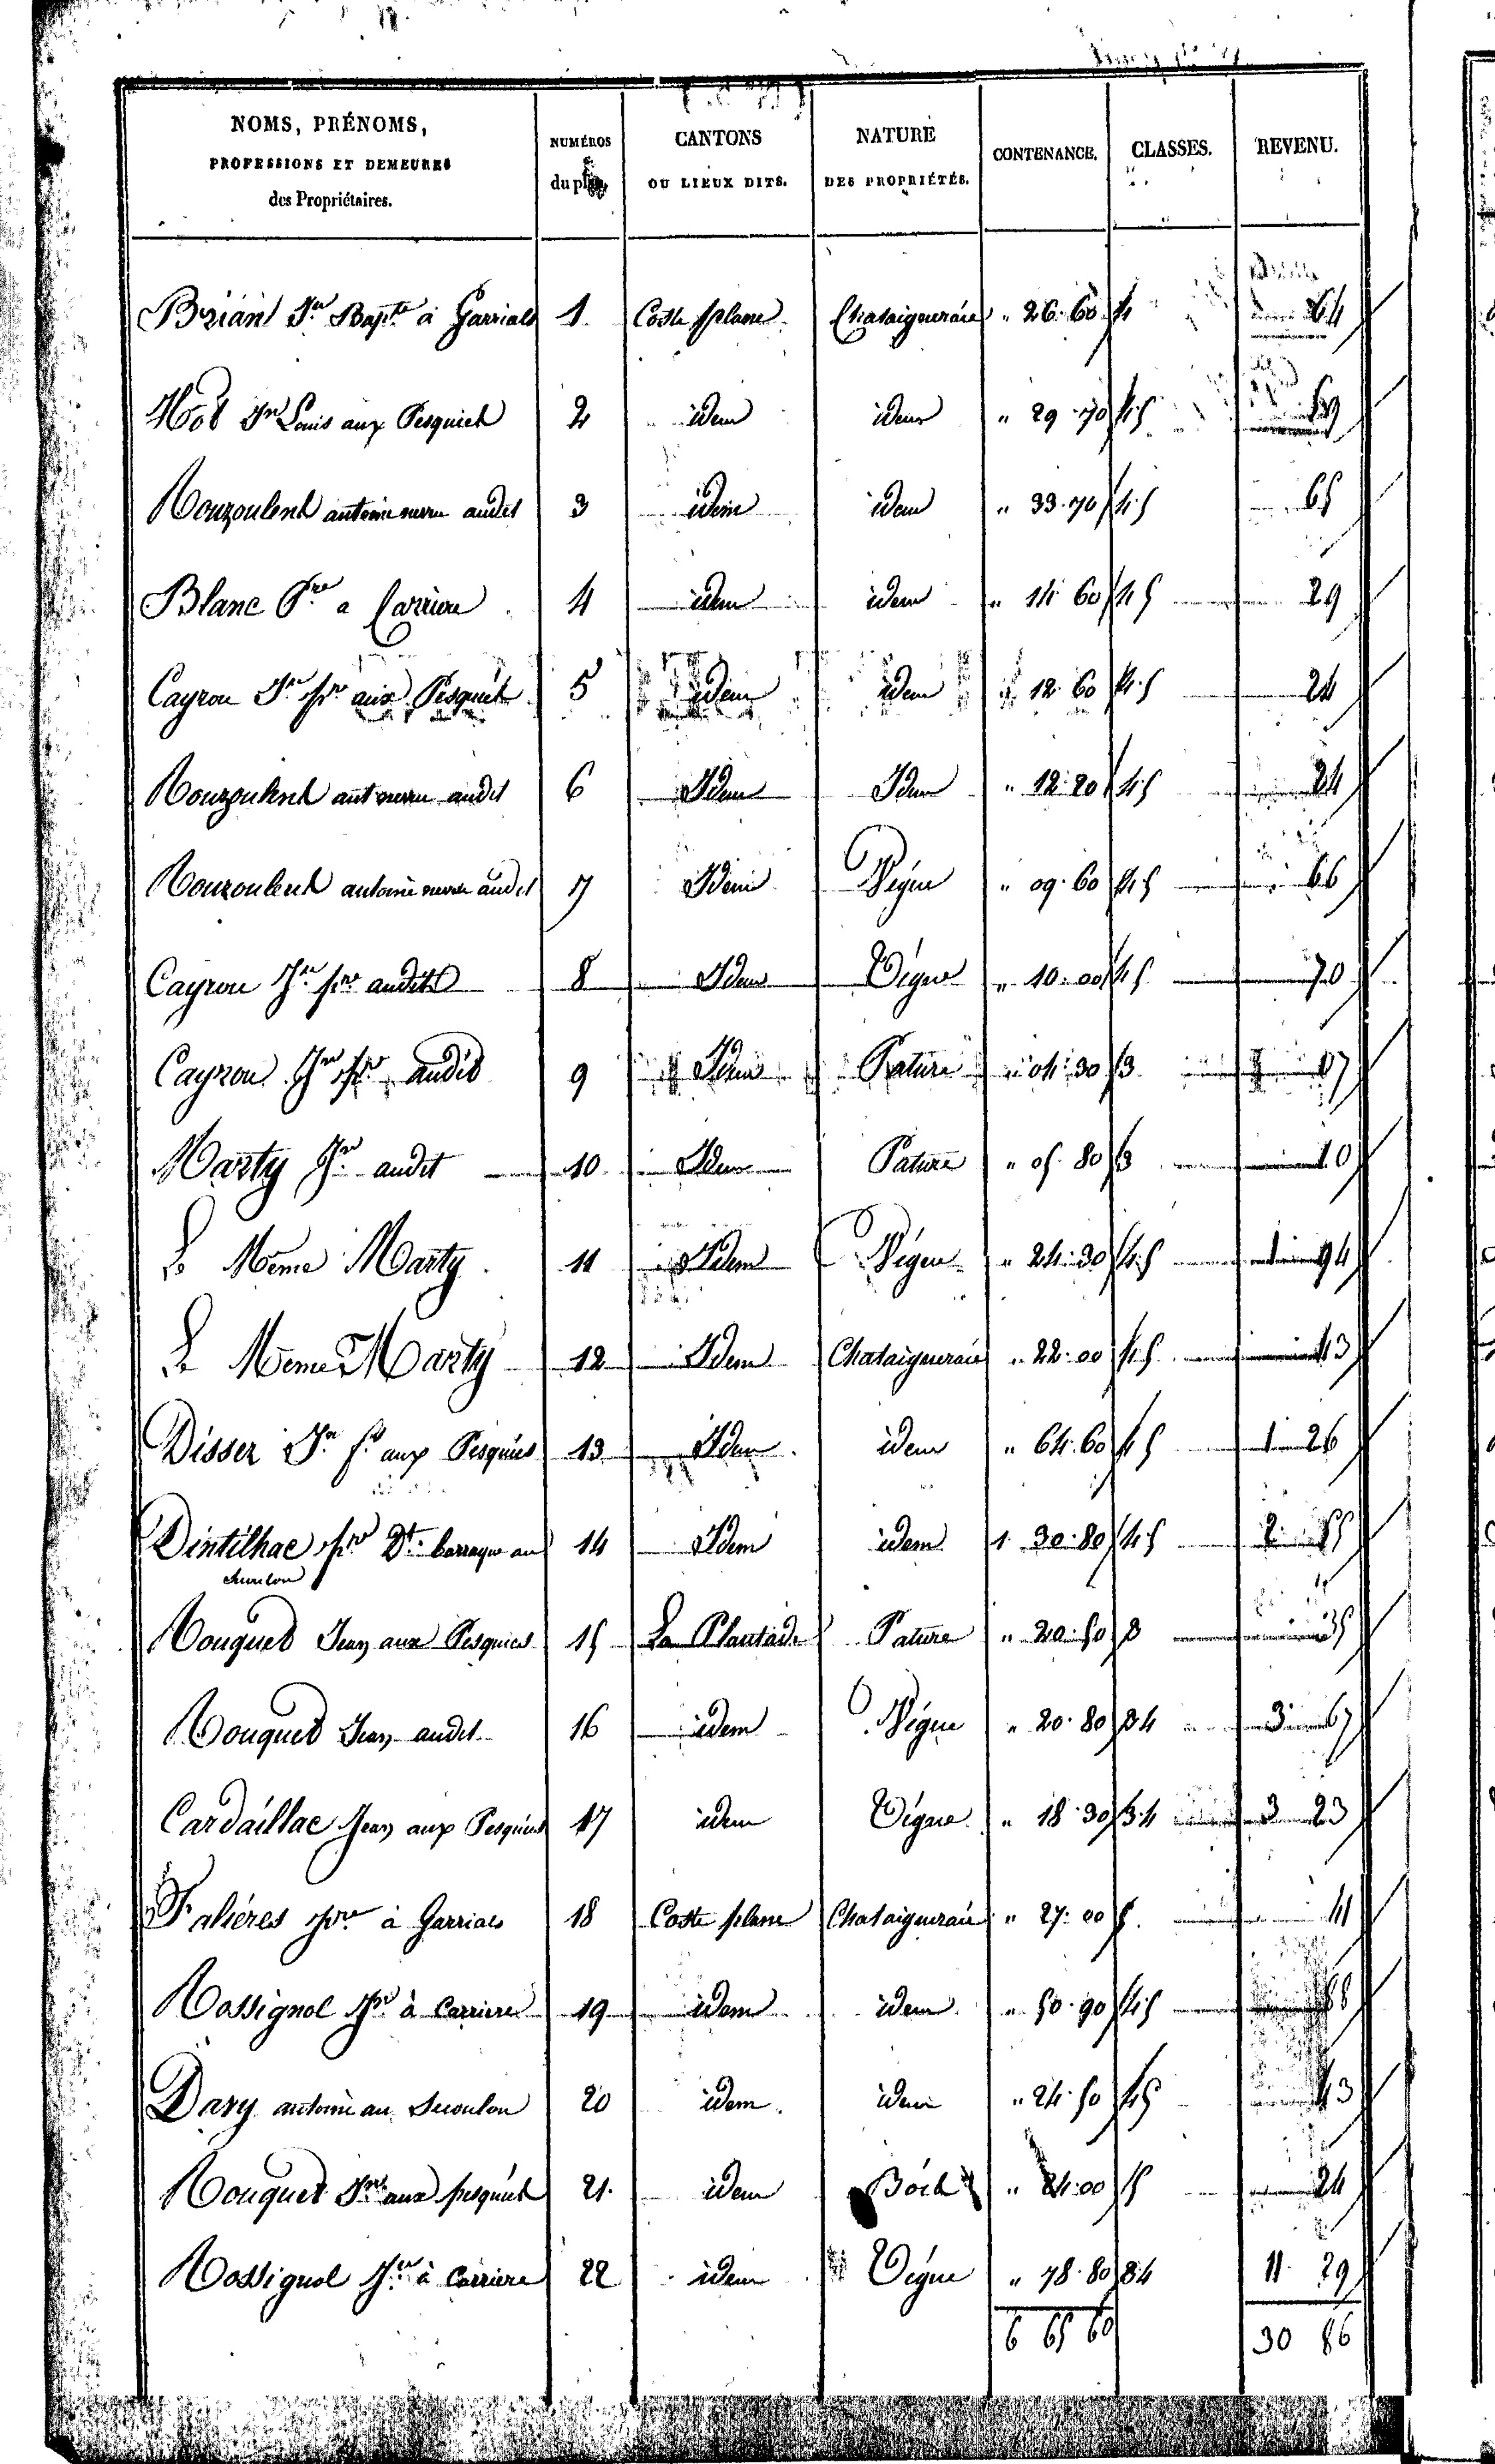 NOMS, PRÉNOMS,
PROFESSIONS ET DEMEURES
des Propriétaires.
NUMÉROS
du plan
CANTONS
OU LIEUX DITS.
NATURE
DES PROPRIÉTÉS.
CONTENANCE.
CLASSES.
REVENU.
Brian Jn Bapte à Garrials 1. Coste plane Chataigneraie " 26. 60
Jn Louis aux Pesquiés 2 idem idem " 29 70 4.5
antoine neveu audit 3 idem idem " 33. 70 4.5 65
Blanc Pre a Carriere 4 idem idem " 14 60 4 5 29
Cayrou Jn Pre aux Pesquiés 5 idem idem " 12. 60 4.5 24
ant neveu audit 6 Idem Idem " 12. 20 4.5 24
antoine neveu audit 7 Idem Vigne " 09. 60 4 5 66
Cayrou Jn Pre audit 8 Idem Vigne " 10. 00 4 5 70
Cayrou Jn Pre audit 9 Idem Pature " 04. 30 3 07
Marty Jn audit 10. Idem Pature " 05. 80 3 10
Le Meme Marty 11 Idem Vigne " 24. 30 4.5 1 94
Le Meme Marty 12 Idem Chataigneraie " 22. 00 4.5 43
Disser Jn fs aux Pesquiés 13 Idem idem " 64. 60 4 5 1 26
Dintilhac Pre Dt barraque au 14 Idem idem 1. 30. 80 4 5 2. 55
Seuoulou
Rouquet Jean aux Pesquiés 15 La Plantade Pature " 20. 50 3 35
Rouquet Jean audit 16 idem Vigne " 20. 80 3 4 3 67
Cardaillac Jean aux Pesquiés 17 idem Vigne " 18. 30 3.4 3 23
Faliéres Pre à Garrials 18 Coste plane Chataigneraie " 27. 00 5. 41
Rossignol Jn à Carriere 19 idem idem " 50. 90 4.5
Dary antoine au Seuoulou 20 idem idem " 24. 50 4 5
Rouquet Jn aux pesquiés 21. idem " 24. 00 24
Rossignol Jn à Carriere 22 idem Vigne " 78. 80 3 4 11. 29
6 65 60 30 86